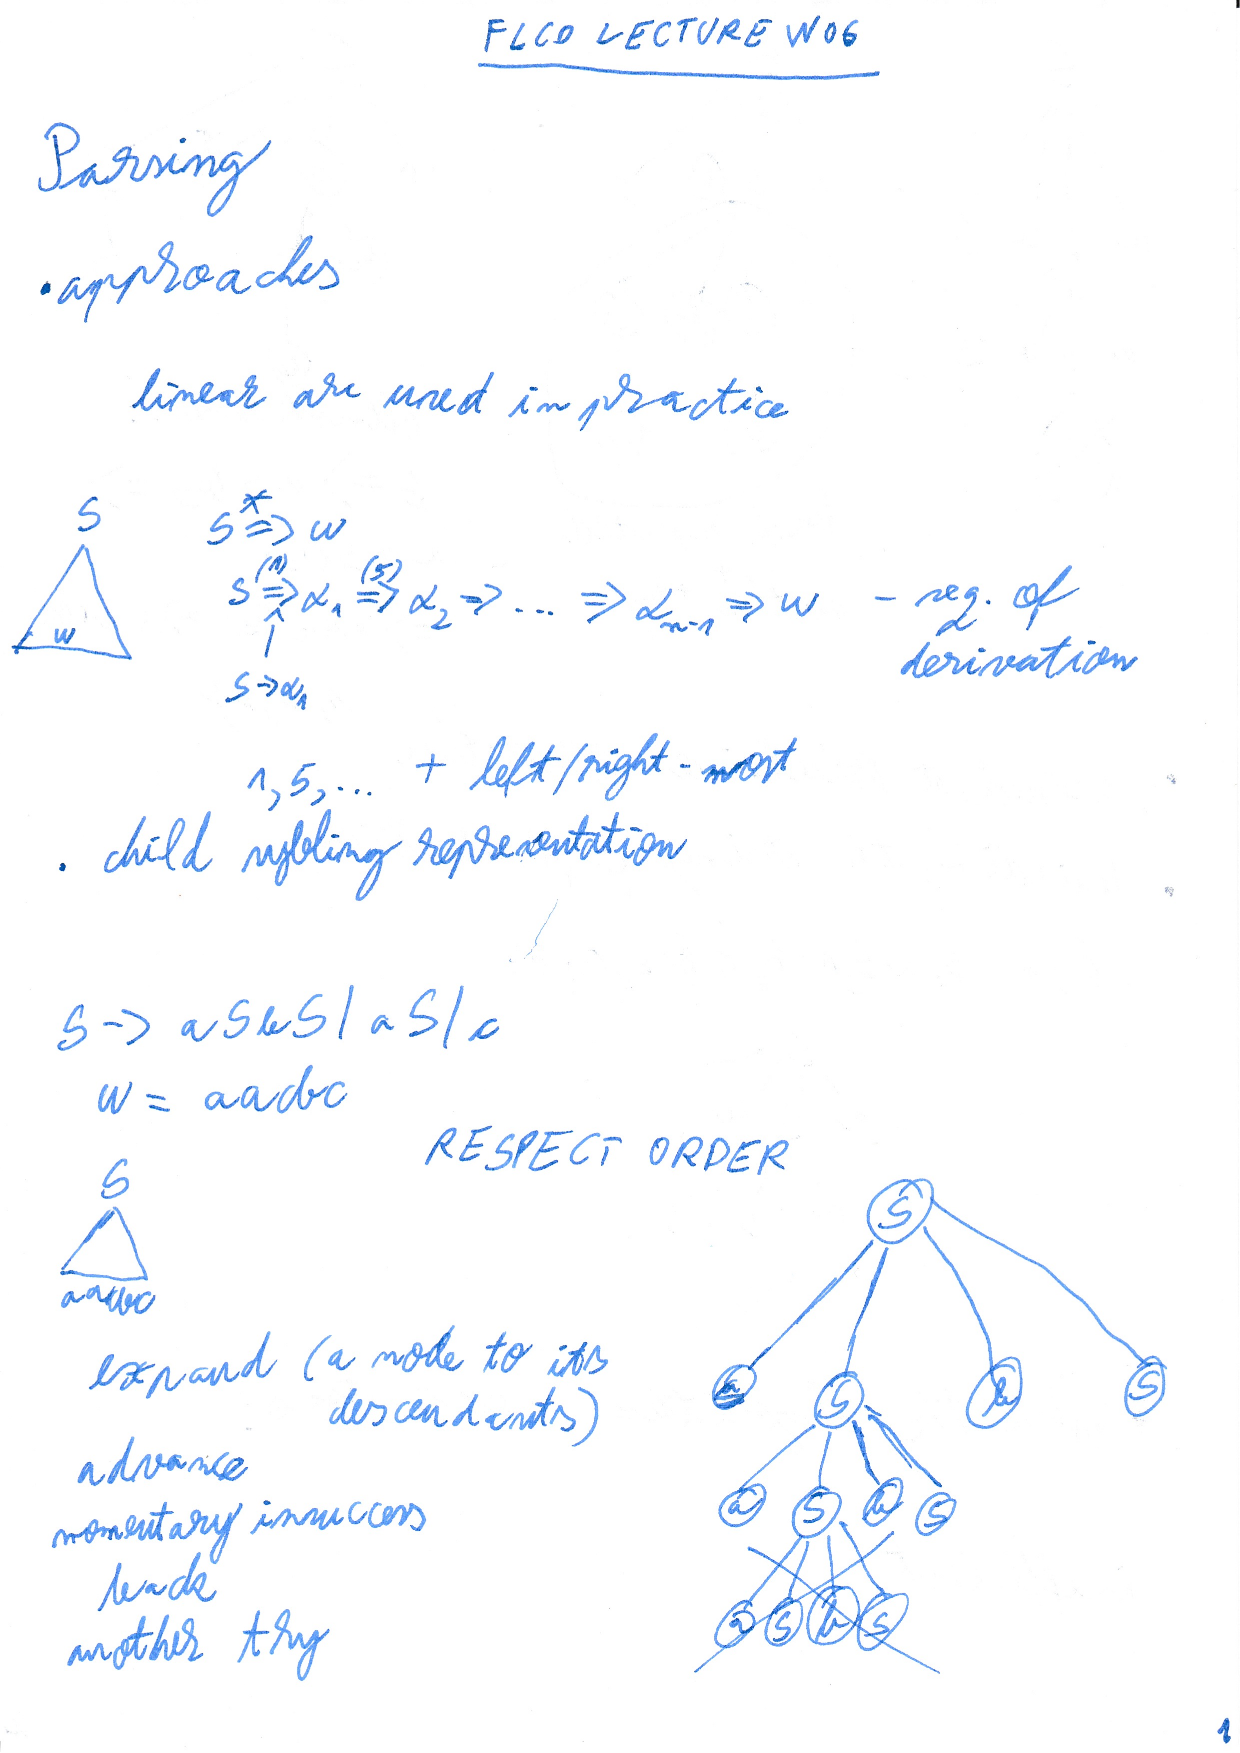 FLCD LECTURE W06
Parsing
• approaches
linear are used in practice
S
w
S *=> w
S (1)=> α1 (5)=> α2 => ... => αn-1 => w - seq. of
derivation
S -> α1
1, 5, ... + left/right-most
• child sybling representation
S -> aSbS | aS | c
w = aacbc
RESPECT ORDER
S
aacbc
S
a S b S
a S b S
a S b S
expand (a node to its
descendants)
advance
momentary insuccess
back
another try
1